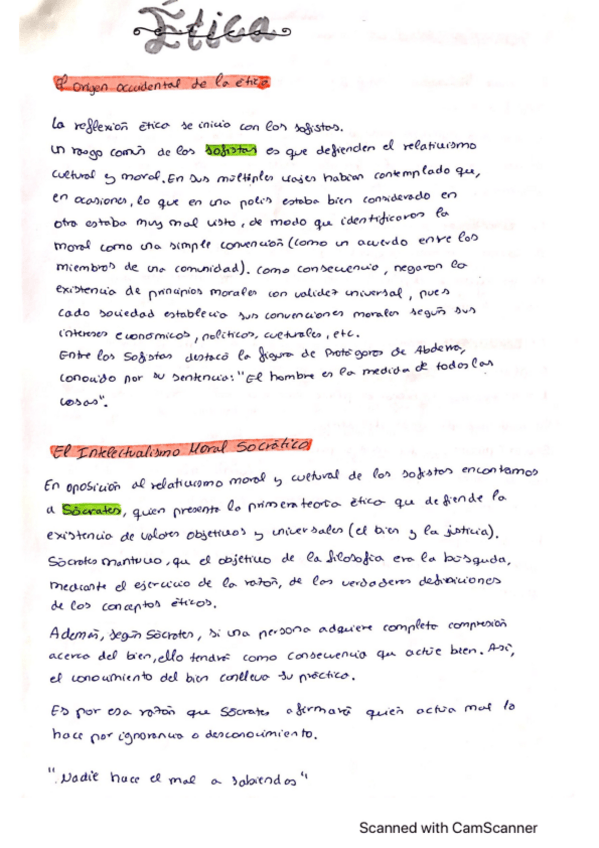 Ética
El origen occidental de la ética
La reflexión ética se inicio con los sofistas.
Un rasgo común de los sofistas es que defienden el relativismo
cultural y moral. En sus múltiples viajes habían contemplado que,
en ocasiones, lo que en una polis estaba bien considerado en
otra estaba muy mal visto, de modo que identificaron la
moral como una simple convención (como un acuerdo entre los
miembros de una comunidad). Como consecuencia, negaron la
existencia de principios morales con validez universal, pues
cada sociedad establecía sus convenciones morales según sus
intereses económicos, políticos, culturales, etc.
Entre los Sofistas destacó la figura de Protágoras de Abdera,
conocido por su sentencia: "El hombre es la medida de todas las
cosas".
El Intelectualismo Moral Socrático
En oposición al relativismo moral y cultural de los sofistas encontamos
a Sócrates, quien presenta la primera teoría ética que defiende la
existencia de valores objetivos y universales (el bien y la justicia).
Sócrates mantuvo, que el objetivo de la filosofía era la búsqueda,
mediante el ejercicio de la razón, de las verdaderas definiciones
de los conceptos éticos.
Además, según Sócrates, si una persona adquiere completa compresión
acerca del bien, ello tendrá como consecuencia que actúe bien. Así,
el conocimiento del bien conlleva su práctica.
Es por esa razón que Sócrates afirmará quién actua mal lo
hace por ignorancia o desconocimiento.
"Nadie hace el mal a sabiendas"
Scanned with CamScanner